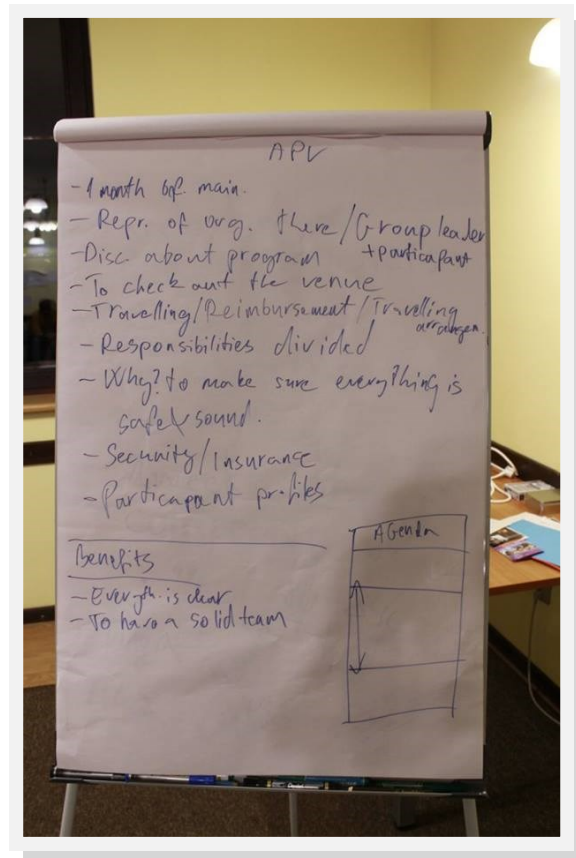 APV
- 1 month bef. main.
- Repr. of org. there/Group leader
+ participant
- Disc about program
- To check out the venue
- Travelling/Reimbursement/Travelling
arrangem.
- Responsibilities divided
- Why? to make sure everything is
safe & sound.
- Security/Insurance
- Particapant profiles
Agenda
Benefits
- Everyth. is clear
- To have a solid team